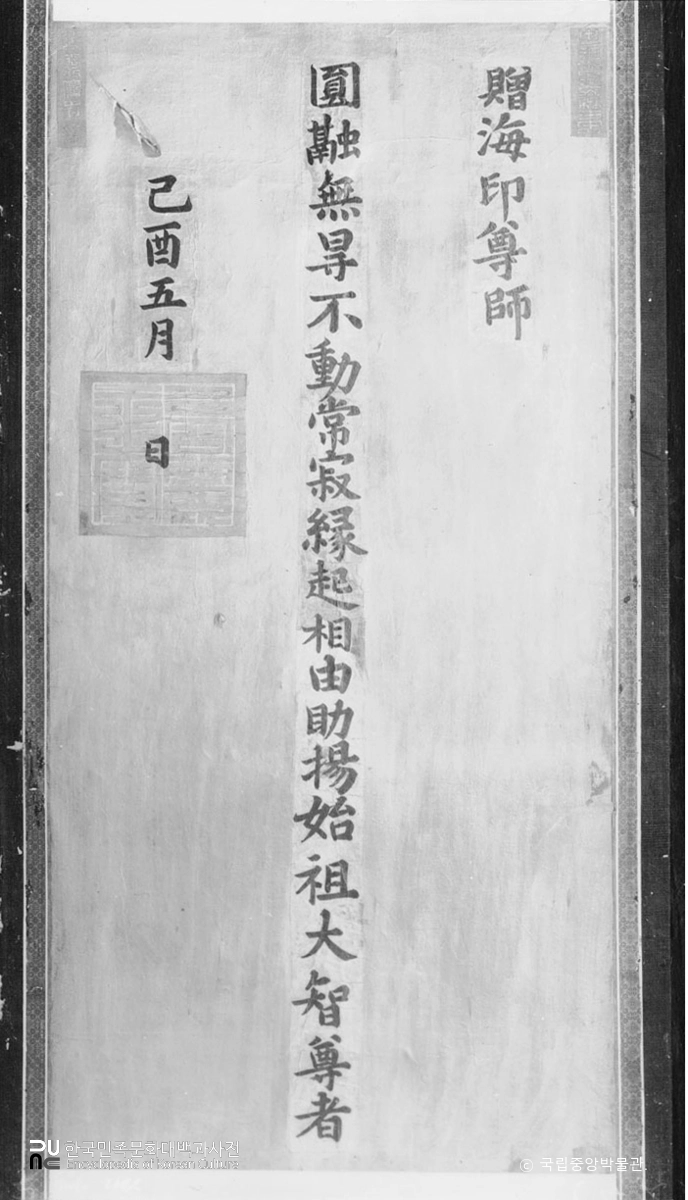 贈海印尊師
圓融無㝵不動常寂緣起相由助揚始祖大智尊者
己酉五月 日
한국민족문화대백과사전
Encyclopedia of Korean Culture
© 국립중앙박물관.